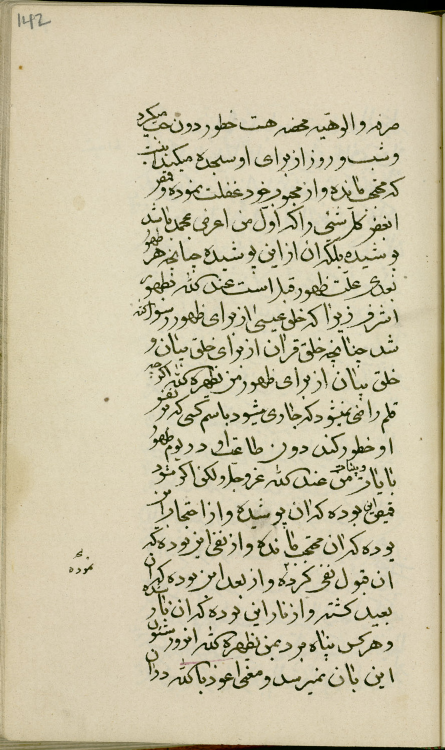 142
صرفه والوهیه محضه هست خطور دون حب میکرد
وشب و روز از برای او سجده میکند
که محتجب مانده و از محبوب خود غفلت نموده و
کل شئی را که اول من اعرض محمد باشد
پوشیده بلکه ان از این پوشیده چنانچه هر
بعدی علت ظهور قبل است عند الله بظهور
اشرف زیرا که خلق عیسی از برای ظهور رسول الله
شد چنانچه خلق قران از برای خلق بیان و
خلق بیان از برای ظهور من یظهره الله اگر چه
قلم راضی نمیشود که جاری شود باسم کسی که بر
او خطور کند دون طاعت او در یوم ظهور
بایات و بینات من عند الله عز وجل ولکن اگر شود
قمیص این بوده که ان پوشیده و از احتجاب
بوده که ان محتجب مانده و از نفی این بوده که
ان قبول نفی کرده و از بعد این بوده که ان
بعید گشته و از نار این بوده که ان نار
و هر کس پناه برد بمن یظهره الله
این بان نمیرسد و معنی اعوذ بالله در ان
نموده